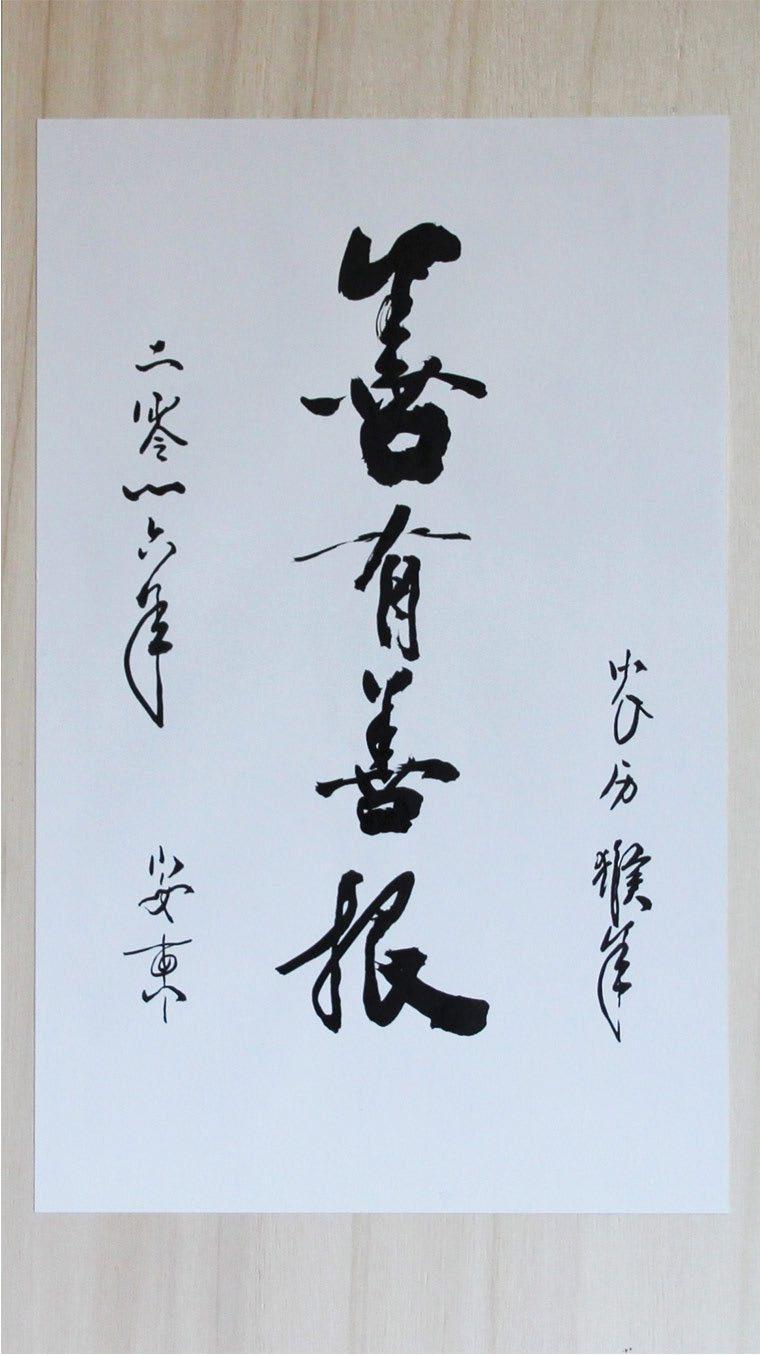 农历猴年
善有善报
二零一六年 安東